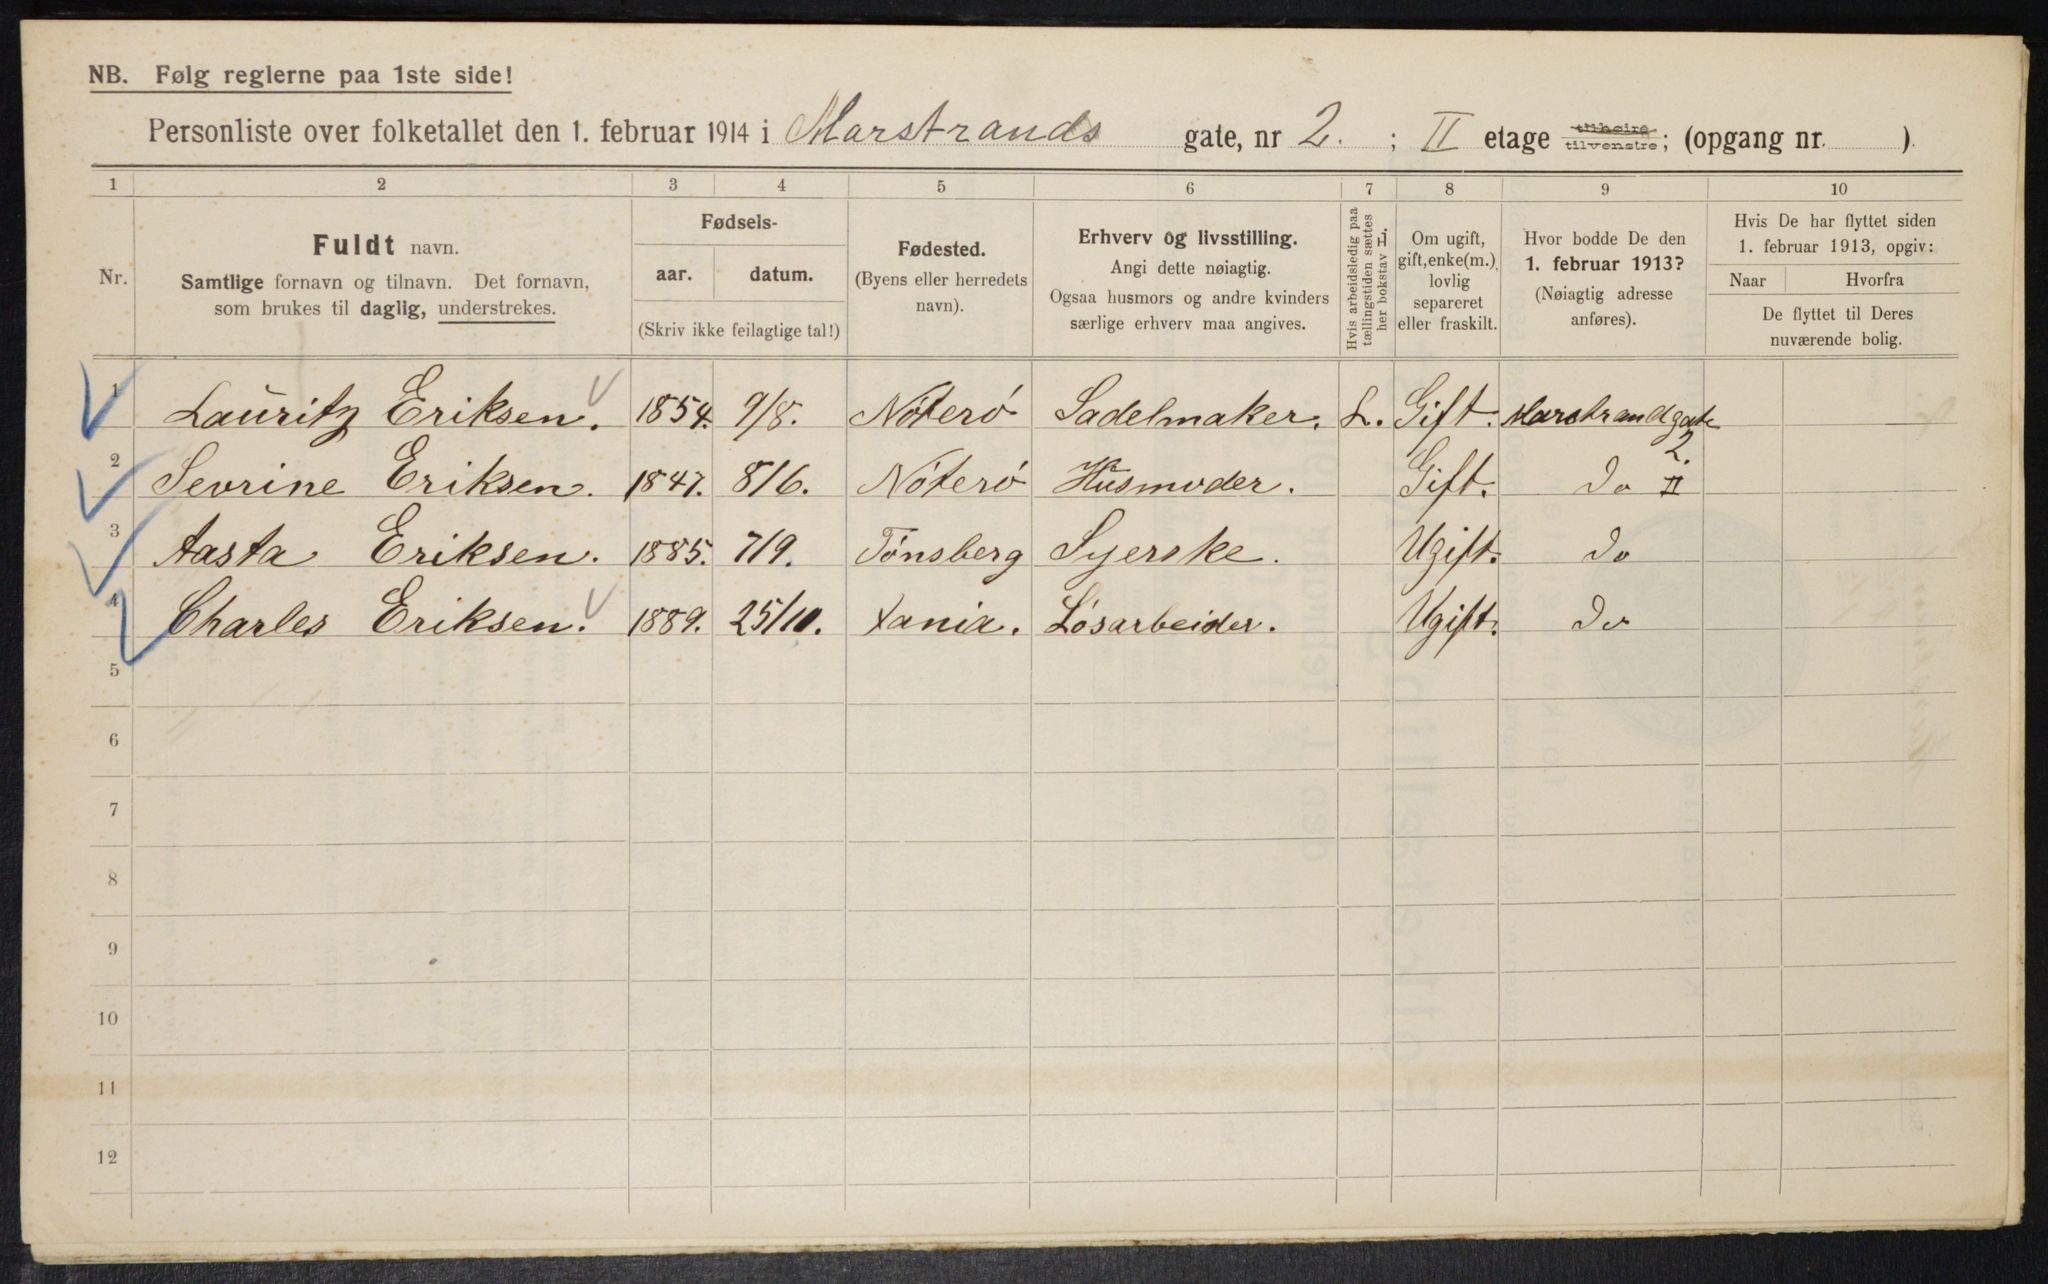 NB. Følg reglerne paa 1ste side!
Personliste over folketallet den 1. februar 1914 i Marstrands gate, nr 2. ; II etage tilhøire tilvenstre; (opgang nr. ).
1 2 3 4 5 6 7 8 9 10
Nr.
Fuldt navn.
Samtlige fornavn og tilnavn. Det fornavn,
som brukes til daglig, understrekes.
Fødsels-
aar. datum.
(Skriv ikke feilagtige tal!)
Fødested.
(Byens eller herredets
navn).
Erhverv og livsstilling.
Angi dette nøiagtig.
Ogsaa husmors og andre kvinders
særlige erhverv maa angives.
Hvis arbeidsledig paa
tællingstiden sættes
her bokstav L.
Om ugift,
gift, enke(m.),
lovlig
separeret
eller fraskilt.
Hvor bodde De den
1. februar 1913?
(Nøiagtig adresse
anføres).
Hvis De har flyttet siden
1. februar 1913, opgiv:
Naar Hvorfra
De flyttet til Deres
nuværende bolig.
1 Lauritz Eriksen. 1854. 9/8. Nøterø Sadelmaker. L. Gift. Marstrandgate 2.
2 Sevrine Eriksen. 1847. 8/6. Nøterø Husmoder. Gift. Do II
3 Aasta Eriksen. 1885. 7/9. Tønsberg Syerske. Ugift. Do
4 Charles Eriksen. 1889. 25/10. Xania. Løsarbeider. Ugift. Do
5
6
7
8
9
10
11
12